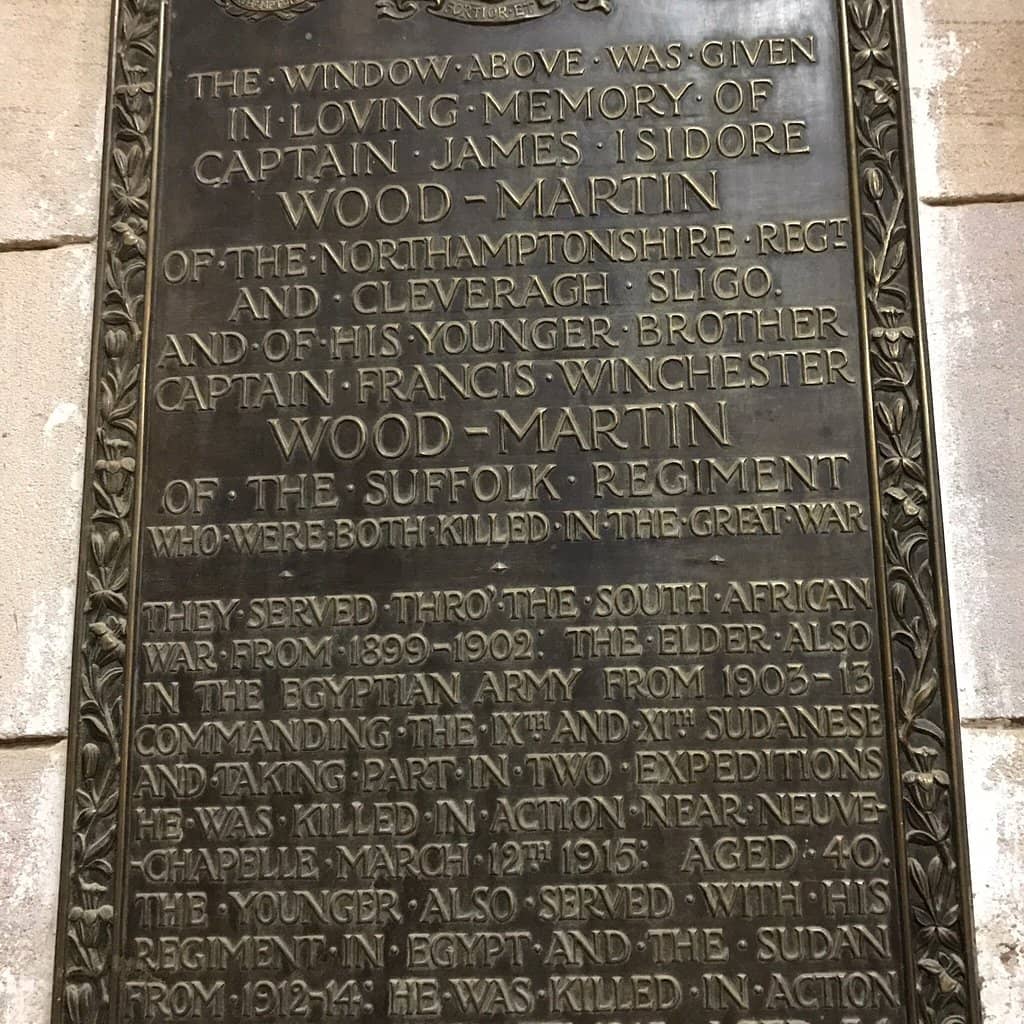 FORTIOR·ET
THE·WINDOW·ABOVE·WAS·GIVEN
IN·LOVING·MEMORY·OF
CAPTAIN·JAMES·ISIDORE
WOOD-MARTIN
OF·THE·NORTHAMPTONSHIRE·REGT
AND·CLEVERAGH·SLIGO.
AND·OF·HIS·YOUNGER·BROTHER
CAPTAIN·FRANCIS·WINCHESTER
WOOD-MARTIN
OF·THE·SUFFOLK·REGIMENT
WHO·WERE·BOTH·KILLED·IN·THE·GREAT·WAR
THEY·SERVED·THRO'·THE·SOUTH·AFRICAN
WAR·FROM·1899-1902: THE·ELDER·ALSO
IN THE EGYPTIAN ARMY FROM 1903-13
COMMANDING·THE·IXTH·AND·XITH·SUDANESE
AND·TAKING·PART·IN·TWO·EXPEDITIONS
HE·WAS·KILLED·IN·ACTION·NEAR·NEUVE-
-CHAPELLE·MARCH·12TH·1915: AGED·40.
THE·YOUNGER·ALSO·SERVED·WITH·HIS
REGIMENT·IN·EGYPT·AND·THE·SUDAN
FROM·1912-14: HE·WAS·KILLED·IN·ACTION